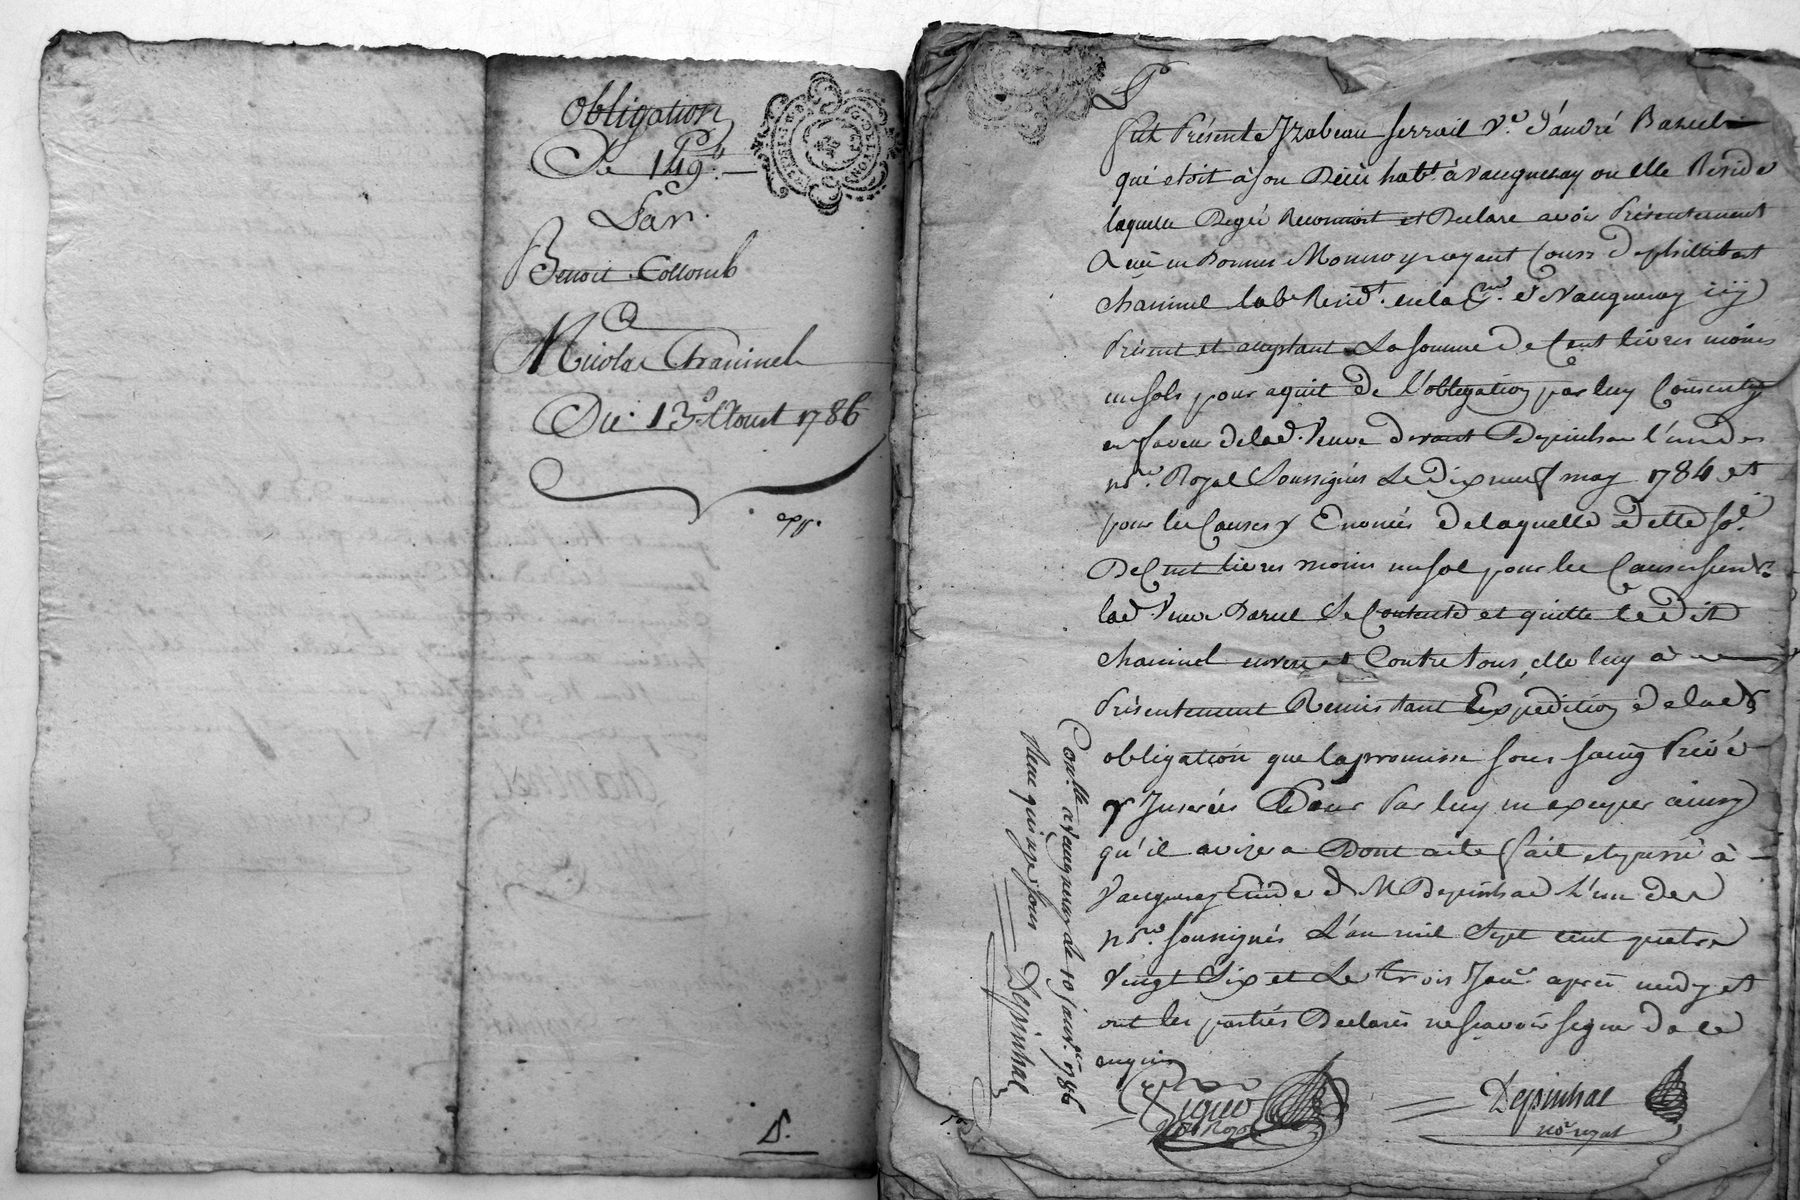 obligation
De 149.tt
Par
Benoit Collomb
A
Nicolas Chaninel
Du 13.e Aoust 1786
exp.
Fut Présente Izabeau ferrail v.e d'andré Barut
qui etoit à son Décès hab.t à vaugneray ou elle Reside
laquelle Degré Reconnoit et Declare avoir Présentement
Receu en Bonnes Monnoye ayant Cours de philibert
chaninel lab.r Resid.t en la d'vaugneray icy
Présent et acceptant La somme de Cent livres moins
un sols pour aquit de L'obligation par luy Consentie
en faveur de lad. Veuve devant Depinhac l'un des
no.res Royal Soussignés Le dix neuf may 1784 et
pour les Causes y Enoncés de laquelle dette
De Cent livres moins un sol pour les Causes
lad Veuve Barut Se Contente et quitte le dit
chaninel envers et Contre tous, elle luy a
Présentement Remis tant Expédition de lad
obligation que la promisse sous saing Privé
y Inserés Pour Par luy en exiger ainsy
qu'il avizera Dont acte fait et passé à
Vaugneray Etude de M Depinhac L'un des
no.res soussignés L'an mil Sept cent quatre
Vingt Six et Le trois Janv. après midy et
ont les parties Declarés ne sçavoir signer de ce
enquis
Con.lle a vaugneray le 10 janv. 1786
Reçu quinze sous Depinhac
Depinhac
no.re royal